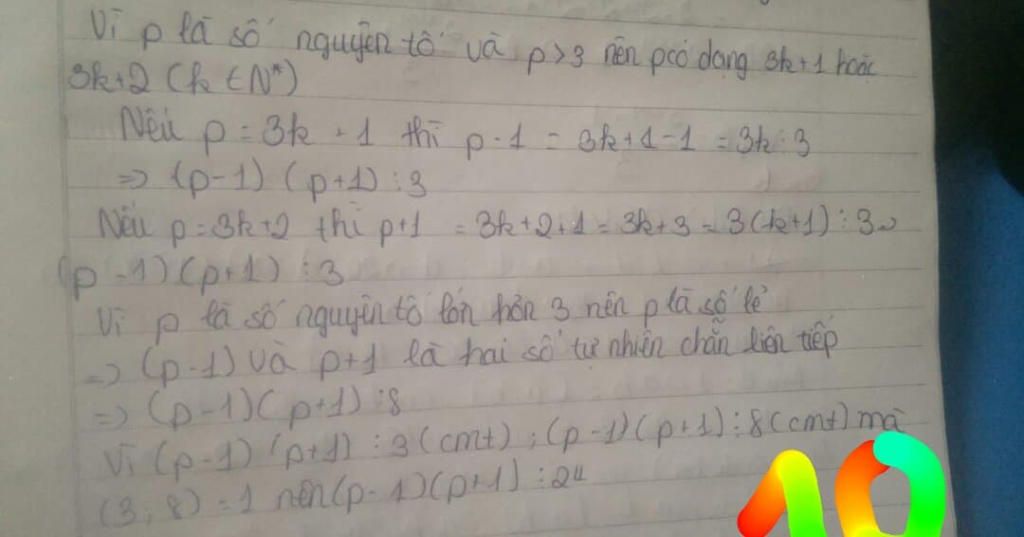 Vì p là số nguyên tố và p>3 nên p có dạng 3k+1 hoặc
3k+2 (k ∈ N*)
Nếu p = 3k + 1 thì p - 1 = 3k+1-1 = 3k ⋮ 3
=> (p-1) (p+1) ⋮ 3
Nếu p = 3k+2 thì p+1 = 3k+2+1 = 3k+3 = 3(k+1) ⋮ 3 =>
(p -1) (p+1) ⋮ 3
Vì p là số nguyên tố lớn hơn 3 nên p là số lẻ
=> (p-1) và p+1 là hai số tự nhiên chẵn liên tiếp
=> (p-1) (p+1) ⋮ 8
Vì (p-1) (p+1) ⋮ 3 (cmt) ; (p-1) (p+1) ⋮ 8 (cmt) mà
(3; 8) = 1 nên (p-1) (p+1) ⋮ 24